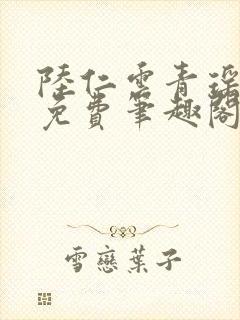 陸仁雲青瑶
免費筆趣閣
雪戀葉子